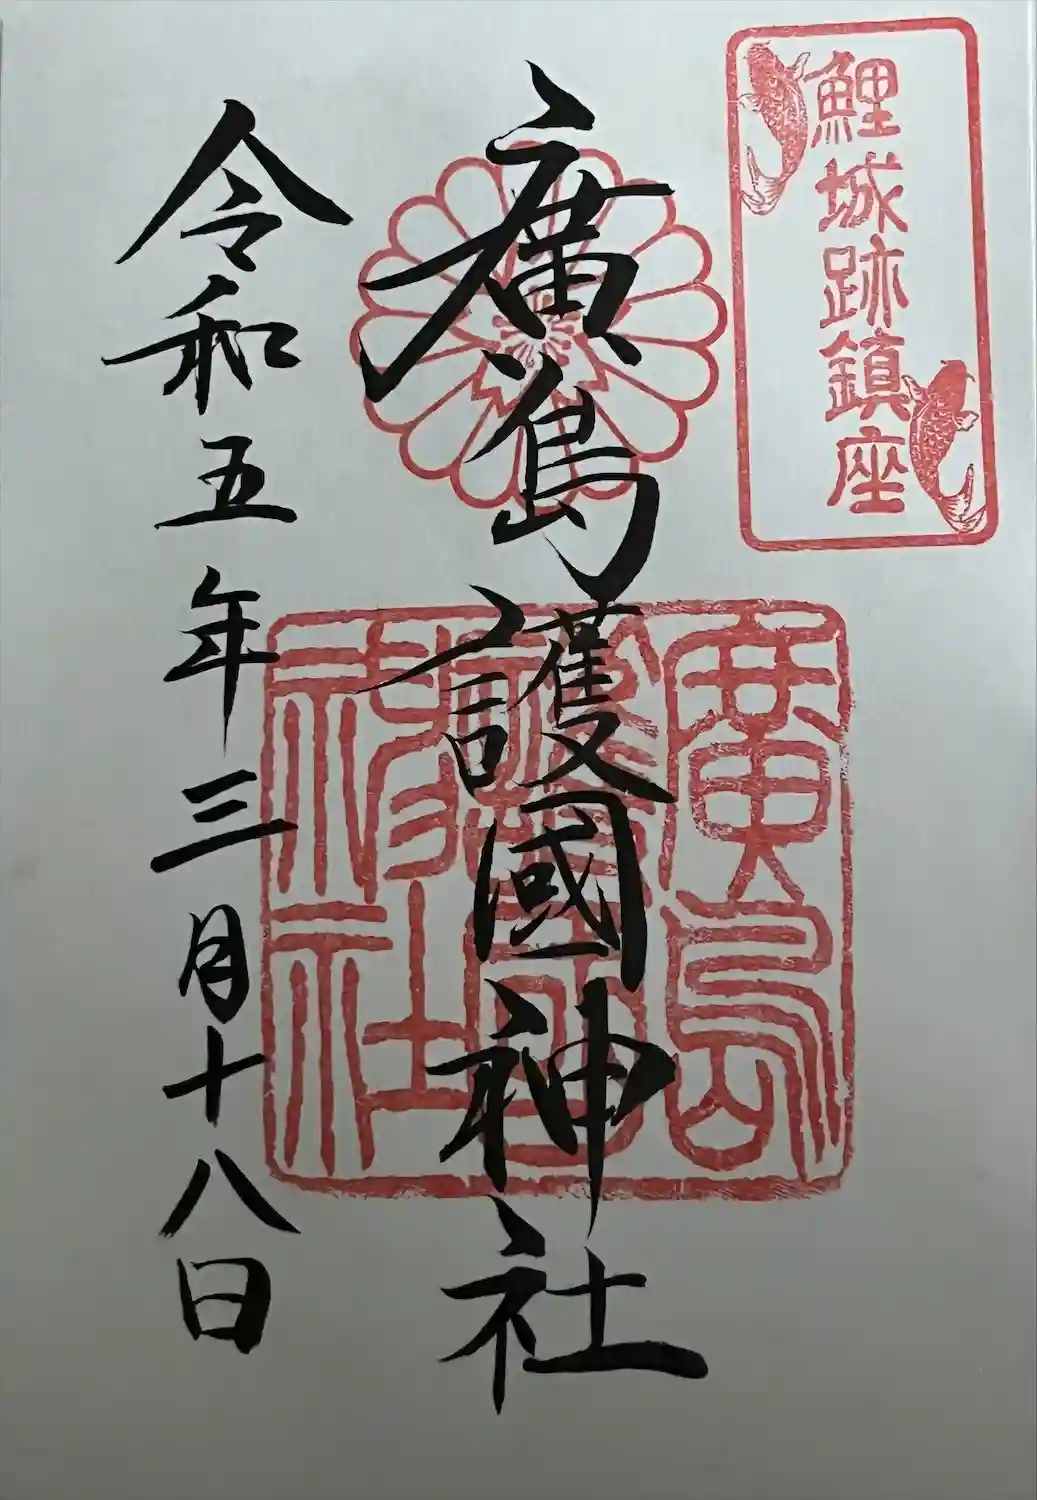 鯉城跡鎮座
廣島護國神社
廣島
護國
神社
令和五年三月十八日